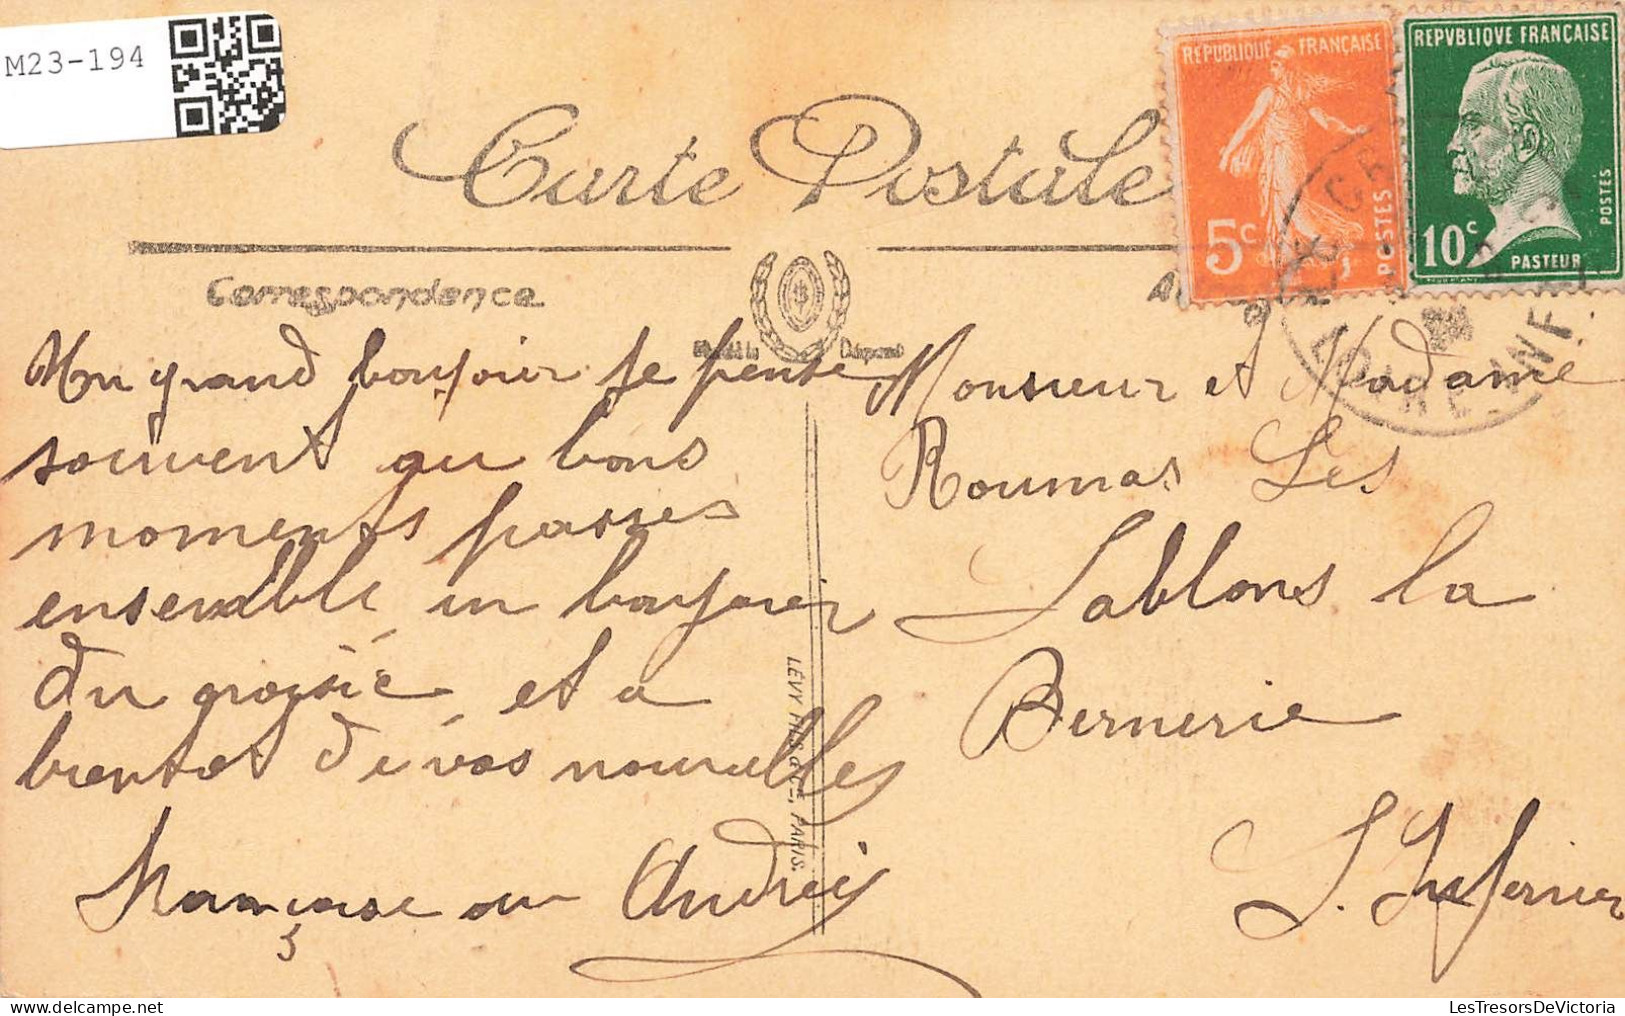 M23-194
Carte Postale
REPUBLIQUE FRANÇAISE
5c
POSTES
REPVBLIQVE FRANÇAISE
10c
POSTES
PASTEUR
LOIRE-INFRE
Correspondence
Un grand bonjour je pense
souvent au bons
moments passes
ensemble un bonjour
du croisic et a
bientot de vos nouvelles
Françoise ou André
Monsieur et Madame
Roumas Les
Sablons la
Bernerie
L. Inferieur
LÉVY FILS & Cie, PARIS.
LesTresorsDeVictoria